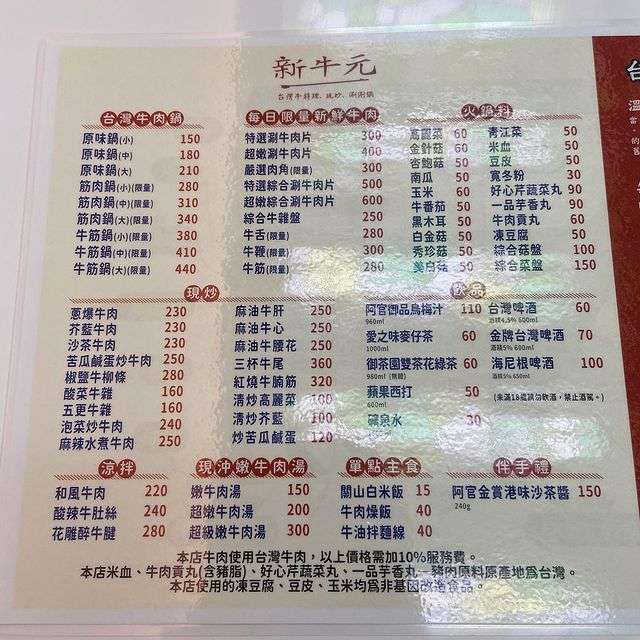 新牛元
台灣牛料理、現炒、涮涮鍋
台灣牛肉鍋
原味鍋(小) 150
原味鍋(中) 180
原味鍋(大) 210
筋肉鍋(小)(限量) 280
筋肉鍋(中)(限量) 310
筋肉鍋(大)(限量) 340
牛筋鍋(小)(限量) 380
牛筋鍋(中)(限量) 410
牛筋鍋(大)(限量) 440
每日限量新鮮牛肉
特選涮牛肉片 300
超嫩涮牛肉片 400
嚴選肉角(限量) 300
特選綜合涮牛肉片 500
超嫩綜合涮牛肉片 600
綜合牛雜盤 250
牛舌(限量) 280
牛鞭(限量) 300
牛筋(限量) 280
火鍋料
高麗菜 60
金針菇 60
杏鮑菇 50
南瓜 50
玉米 60
牛番茄 50
黑木耳 50
白金菇 50
秀珍菇 50
美白菇 50
青江菜 50
米血 50
豆皮 50
寬冬粉 30
好心芹蔬菜丸 90
一品芋香丸 90
牛肉貢丸 60
凍豆腐 50
綜合菇盤 100
綜合菜盤 150
現炒
蔥爆牛肉 230
芥藍牛肉 230
沙茶牛肉 230
苦瓜鹹蛋炒牛肉 250
椒鹽牛柳條 280
酸菜牛雜 160
五更牛雜 160
泡菜炒牛肉 240
麻辣水煮牛肉 250
麻油牛肝 250
麻油牛心 250
麻油牛腰花 250
三杯牛尾 360
紅燒牛腩筋 320
清炒高麗菜 100
清炒芥藍 100
炒苦瓜鹹蛋 120
飲品
阿官御品烏梅汁 110
960ml
愛之味麥仔茶 60
1000ml
御茶園雙茶花綠茶 60
980ml (無糖)
蘋果西打 50
600ml
礦泉水 30
台灣啤酒 60
酒精4.5% 600ml
金牌台灣啤酒 70
酒精5% 600ml
海尼根啤酒 100
酒精5% 650ml
(未滿18歲請勿飲酒，禁止酒駕。)
涼拌
和風牛肉 220
酸辣牛肚絲 240
花雕醉牛腱 280
現沖嫩牛肉湯
嫩牛肉湯 150
超嫩牛肉湯 200
超級嫩牛肉湯 300
單點主食
關山白米飯 15
牛肉燥飯 40
牛油拌麵線 40
伴手禮
阿官金賞港味沙茶醬 150
240g
本店牛肉使用台灣牛肉，以上價格需加10%服務費。
本店米血、牛肉貢丸(含豬脂)、好心芹蔬菜丸、一品芋香丸—豬肉原料原產地為台灣。
本店使用的凍豆腐、豆皮、玉米均為非基因改造食品。